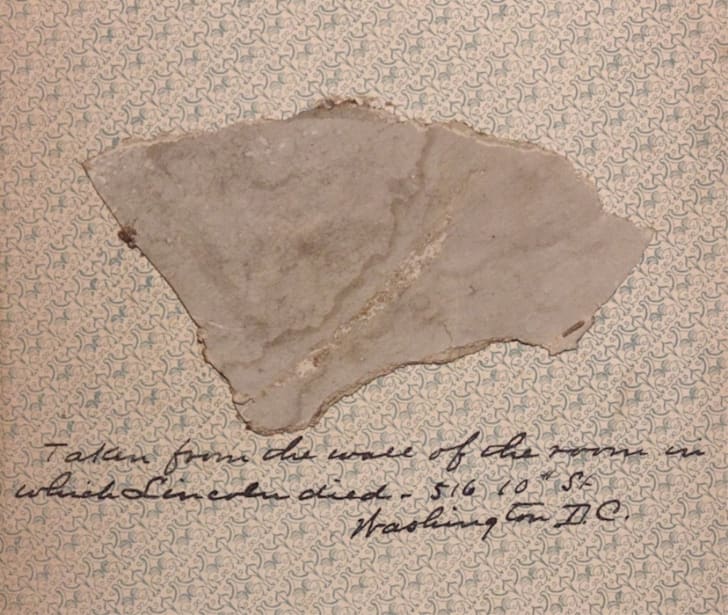 Taken from the wall of the room in
which Lincoln died - 516 10th St
Washington D.C.